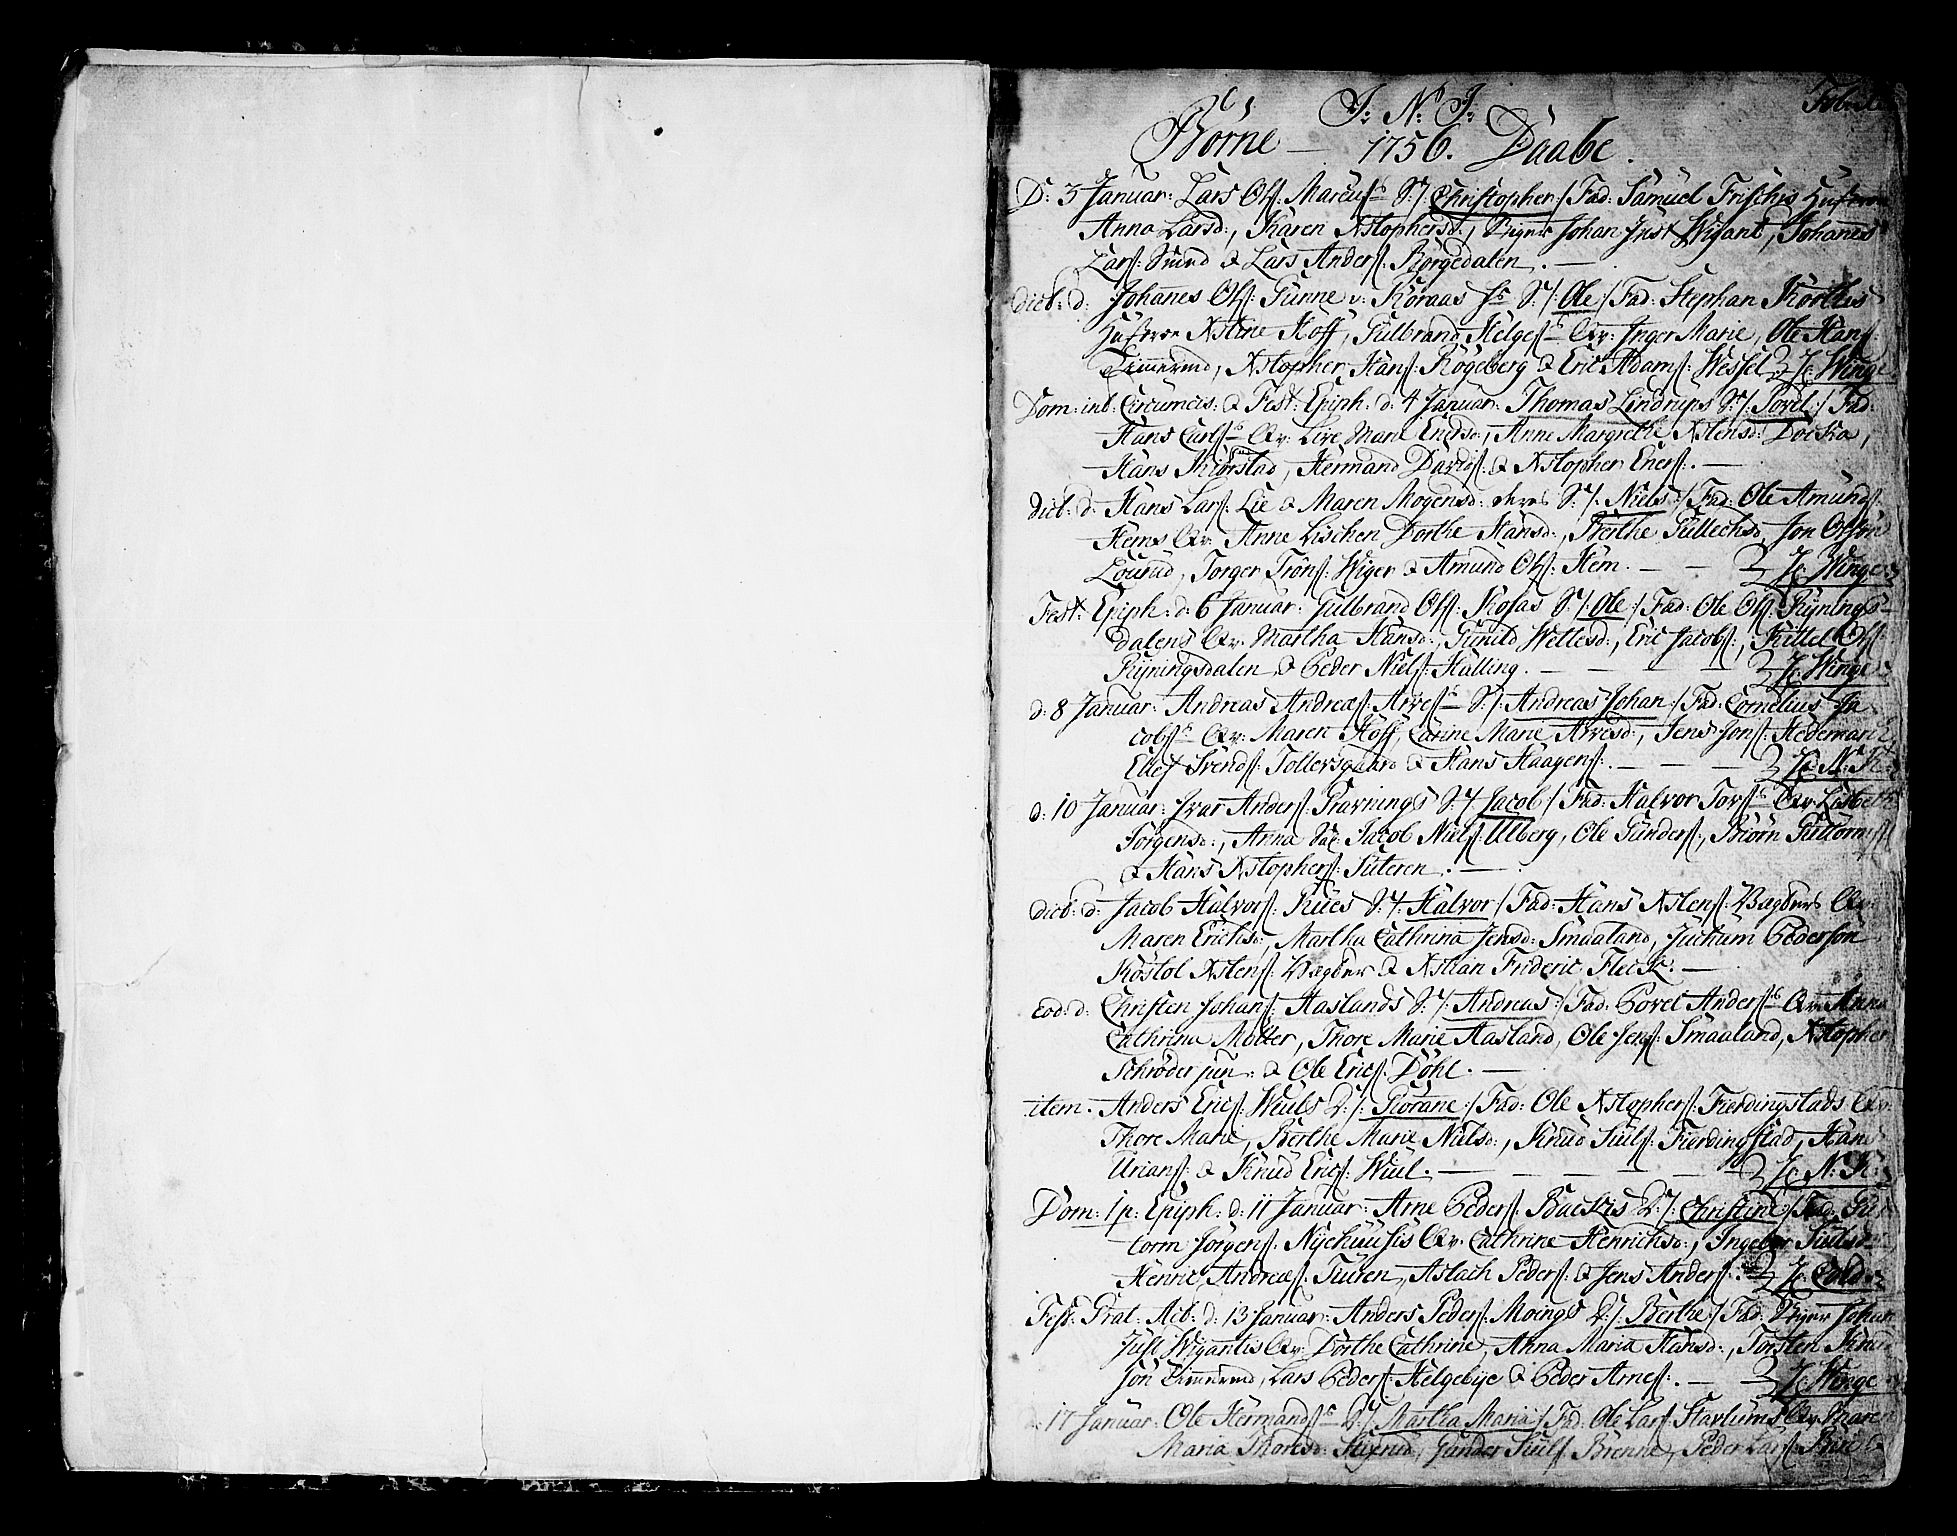 J: N: J:
Börne — 1756. Daabe.
D: 3 Januar: Lars Olſ: Marcuſ S:/: Christopher:/ Fad: Samuel Frischis Hustroe
Anna Larsd:, Karen Xstophersd:, Johan Just Wigant, Johanes
Larſ: Smed & Lars Anderſ: Börgedalen. —
dicb: d: Johanes Olſ: Gunne v: Koraas S:/: Ole:/ Fad: Stephan
Hustroe Xstine Hoff, Gulbrand Helgeſ Qv: Inger Marie, Ole Hanſ:
Timermd, Xstopher Hanſ: Rögeberg & Eric Adamſ: Wessel H: Winge
Dom: int: Circumcis: & Fest: Epiph: d: 4 Januar: Thomas Lindrups S:/: Povel:/ Fad:
Hans Carlſ Qv: Live Marie Ericsd:, Anne Margrethe Xstensd: Docka,
Hans Kiörstad, Hermand Davidſ: & Xstopher Enerſ:. —
dicb: d: Hans Larſ: Lie & Maren Mogensd: S:/: Niels:/ Fad: Ole Amundſ:
Hems Qv: Anne Lischen Dorthe Hansd:, Berthe Gullechsd, Jon Olſön
Lourud, Torger Trönſ: Wiger & Amund Olſ: Hem. — — H: Winge
Fest: Epiph: d: 6 Januar: Gulbrand Olſ: S:/: Ole:/ Fad: Ole Olſ: Rynings-
dalens Qv: Martha Hansd:, Gunild Wettesd:, Eric Jacobſ:, Kittel Olſ:
Ryningsdalen & Peder Nielſ: Halling. — — — H: Winge
d: 8 Januar: Andreas Andreæſ: Arveſ S:/: Andreas Johan:/ Fad: Cornelius Ja-
cobſ Qv: Maren Hoff, Carine Marie Arvesd:, Jens Jonſ: Hedemark
Ellef Svendſ: Tollersgaard & Hans Haagenſ:. — — — H: N: K:
d: 10 Januar: Ivar Anderſ: S:/: Jacob:/ Fad: Halvor Torſ Qv: Lisbeth
Jörgensd:, Anna Jacob Nielſ: Ulberg, Ole Gunderſ:, Biörn Guttormſ:
& Hans Xstopherſ: Suteren. —
dicb: d: Jacob Halvorſ: Rues S:/: Halvor:/ Fad: Hans Xstenſ: Qv:
Maren Erichsd:, Martha Cathrina Jensd: Smaaland, Juchum Pederson
Kostol Xstenſ: & Xstian Frideric Fleck. —
Eod: d: Christen Johanſ: Haslands S:/: Andreas:/ Fad: Povel Anderſ Qv: Anna
Cathrina Möller, Thore Marie Hasland, Ole Jenſ: Smaaland, Xstopher
Schröder jun: & Ole Ericſ: Döhl. —
item. Anders Ericſ: Wiuls D:/: Gorane:/ Fad: Ole Xstopherſ: Fierdingstads Qv:
Thore Marie, Berthe Marie Nielsd:, Knud Siulſ: Fierdingstad, Hans
Urianſ: & Knud Ericſ: Wiul. — — — — — H: N: K:
Dom: 1 p: Epiph: d: 11 Januar: Arne Pederſ: Backis D:/: Christine:/ Fad: Gut-
torm Jörgenſ: Nyehuusis Qv: Cathrine Henrichsd:, Ingebor Siulsd:
Henric Andreæſ: Furen, Aslach Pederſ: & Jens Anderſ:
Fest: d: 13 Januar: Anders Pederſ: Moings D:/: Berthe:/ Fad: Johan
Just Wigantis Qv: Dorthe Cathrine, Anna Maria Hansd:, Torsten Knud-
sön Timermd, Lars Pederſ: Helgebye & Peder Arneſ:. — H: Winge
d: 17 Januar: Ole Hermandſ D:/: Martha Maria:/ Fad: Ole Larſ: Qv: Maren
Maria Thoresd:, Gunder Siulſ: Brenne, Peder Larſ: